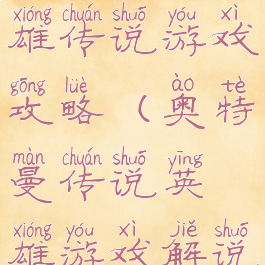 xióng chuán shuō yóu xì
雄传说游戏
gōng lüè ào tè
攻略（奥特
màn chuán shuō yīng
曼传说英
xióng yóu xì jiě shuō
雄游戏解说